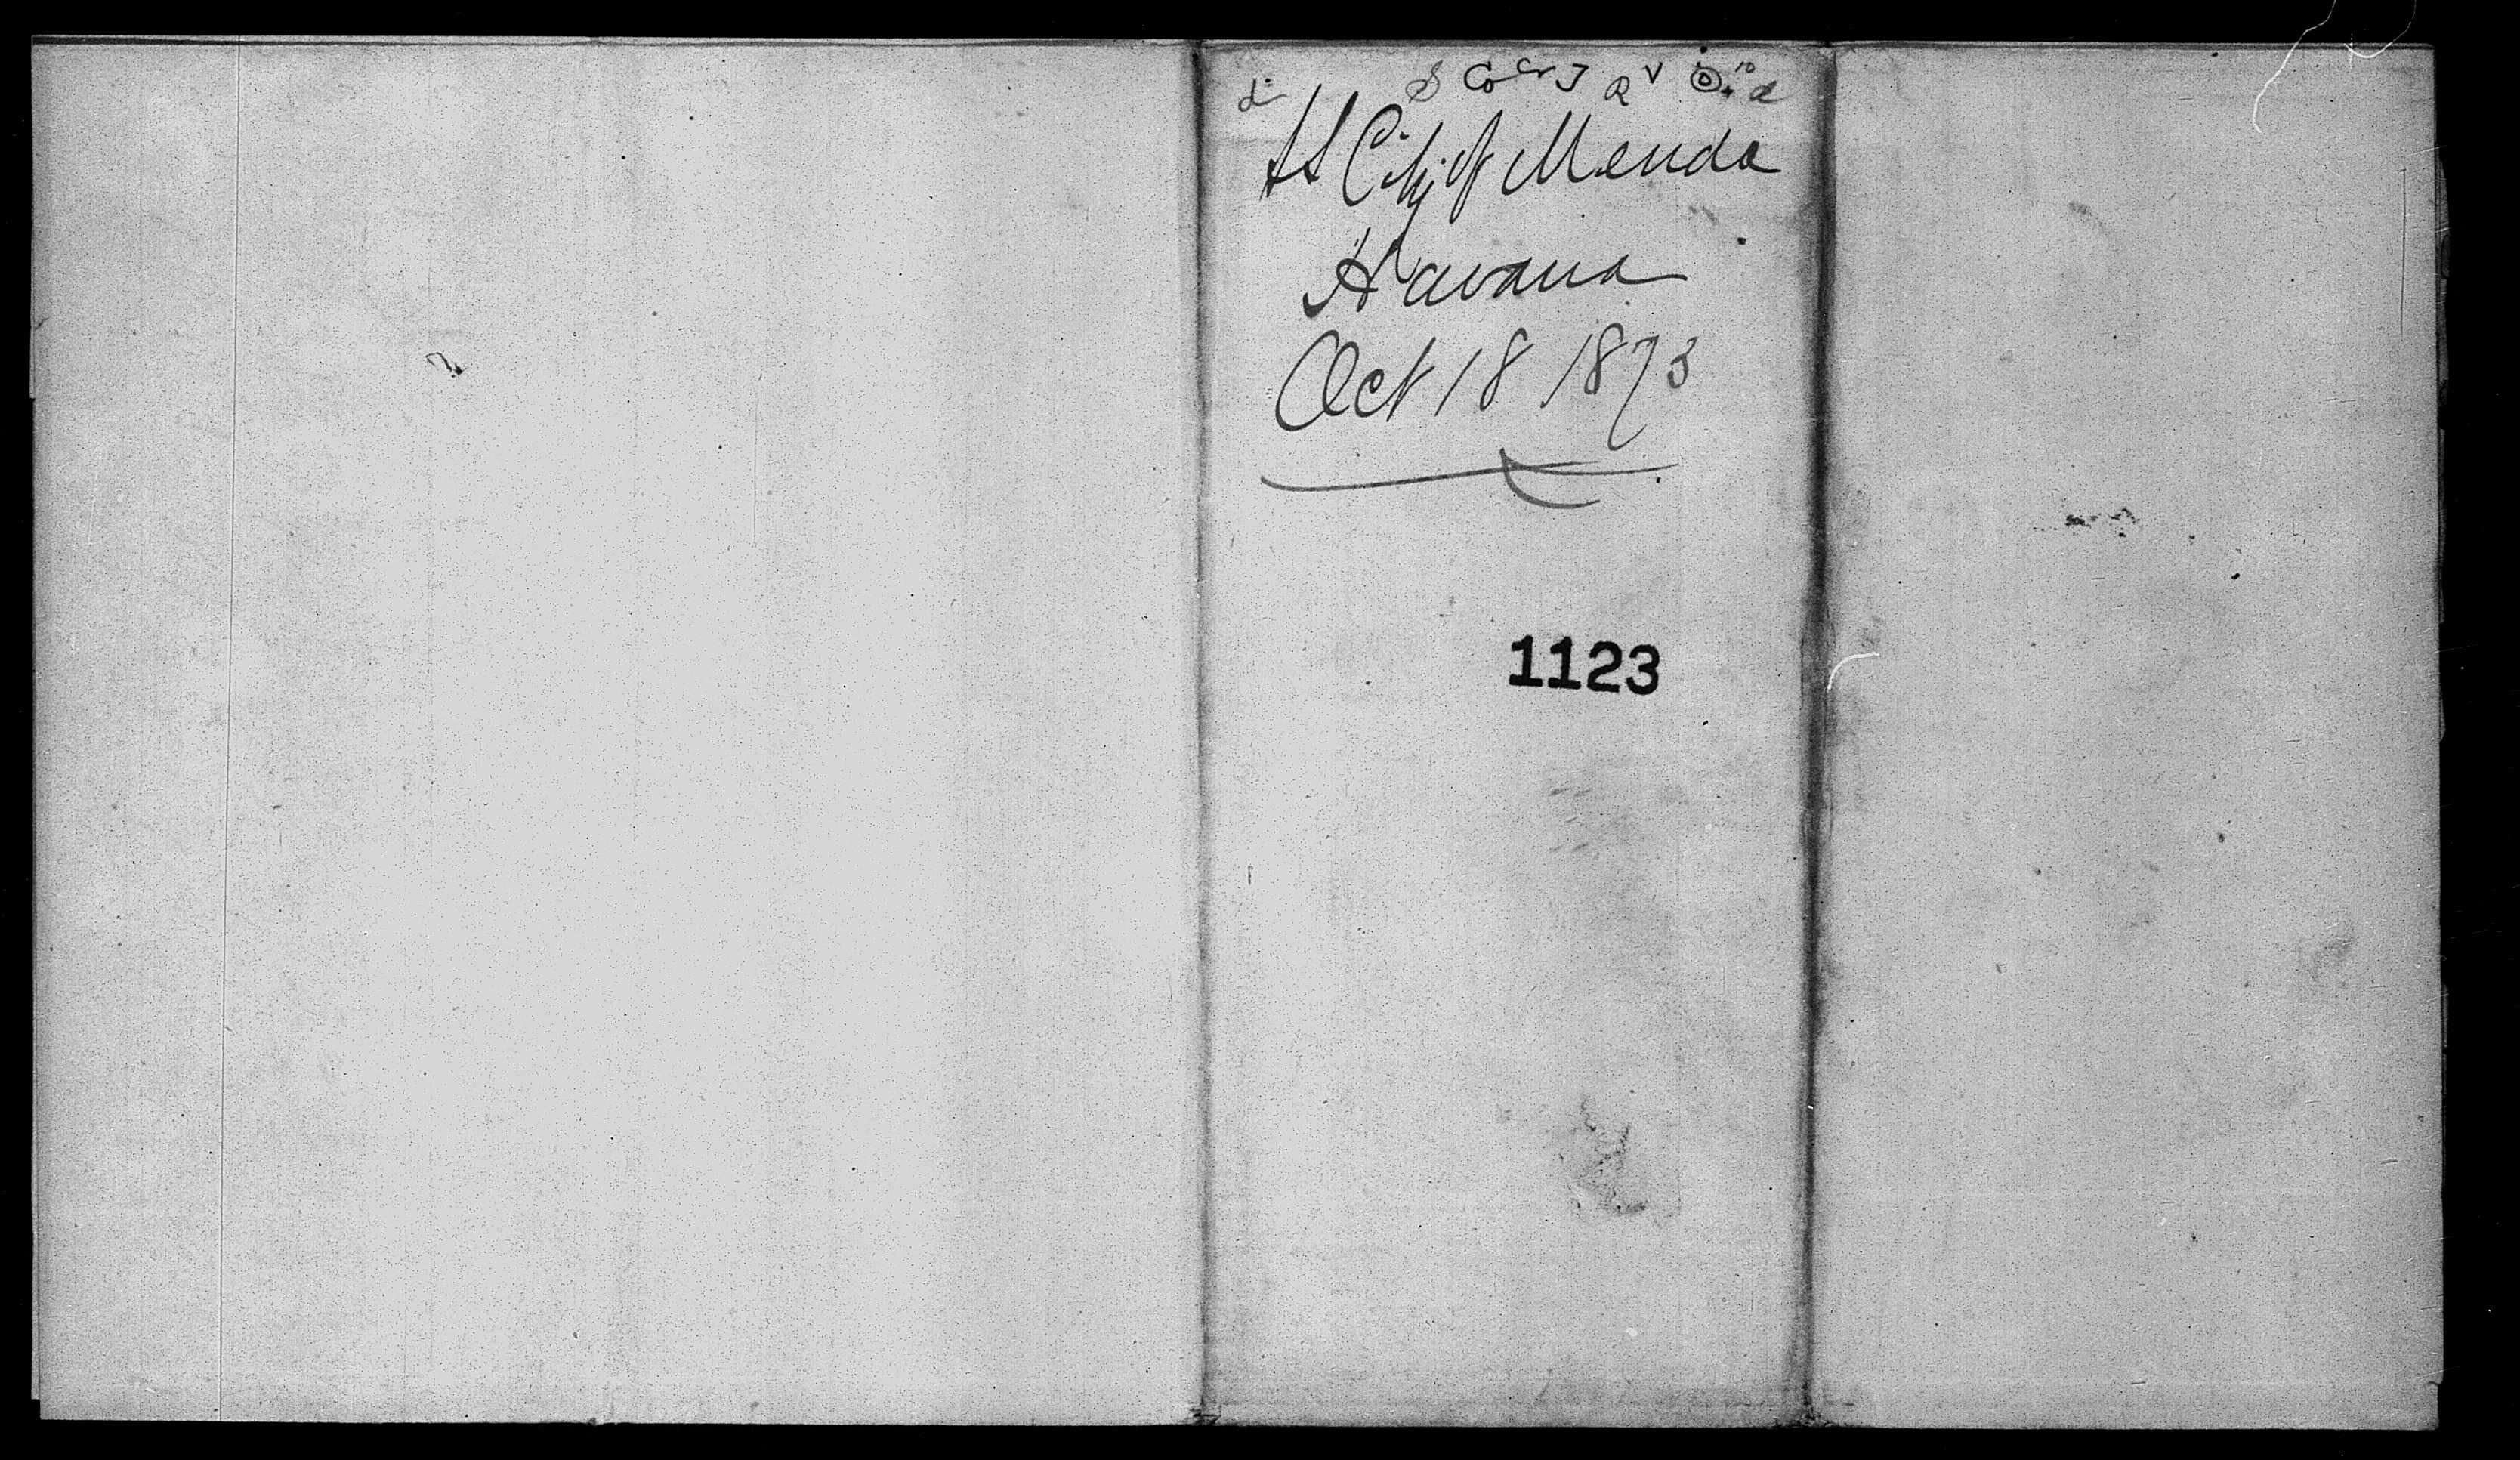 SS City of Merida
Havana
Oct 18 1873
1123